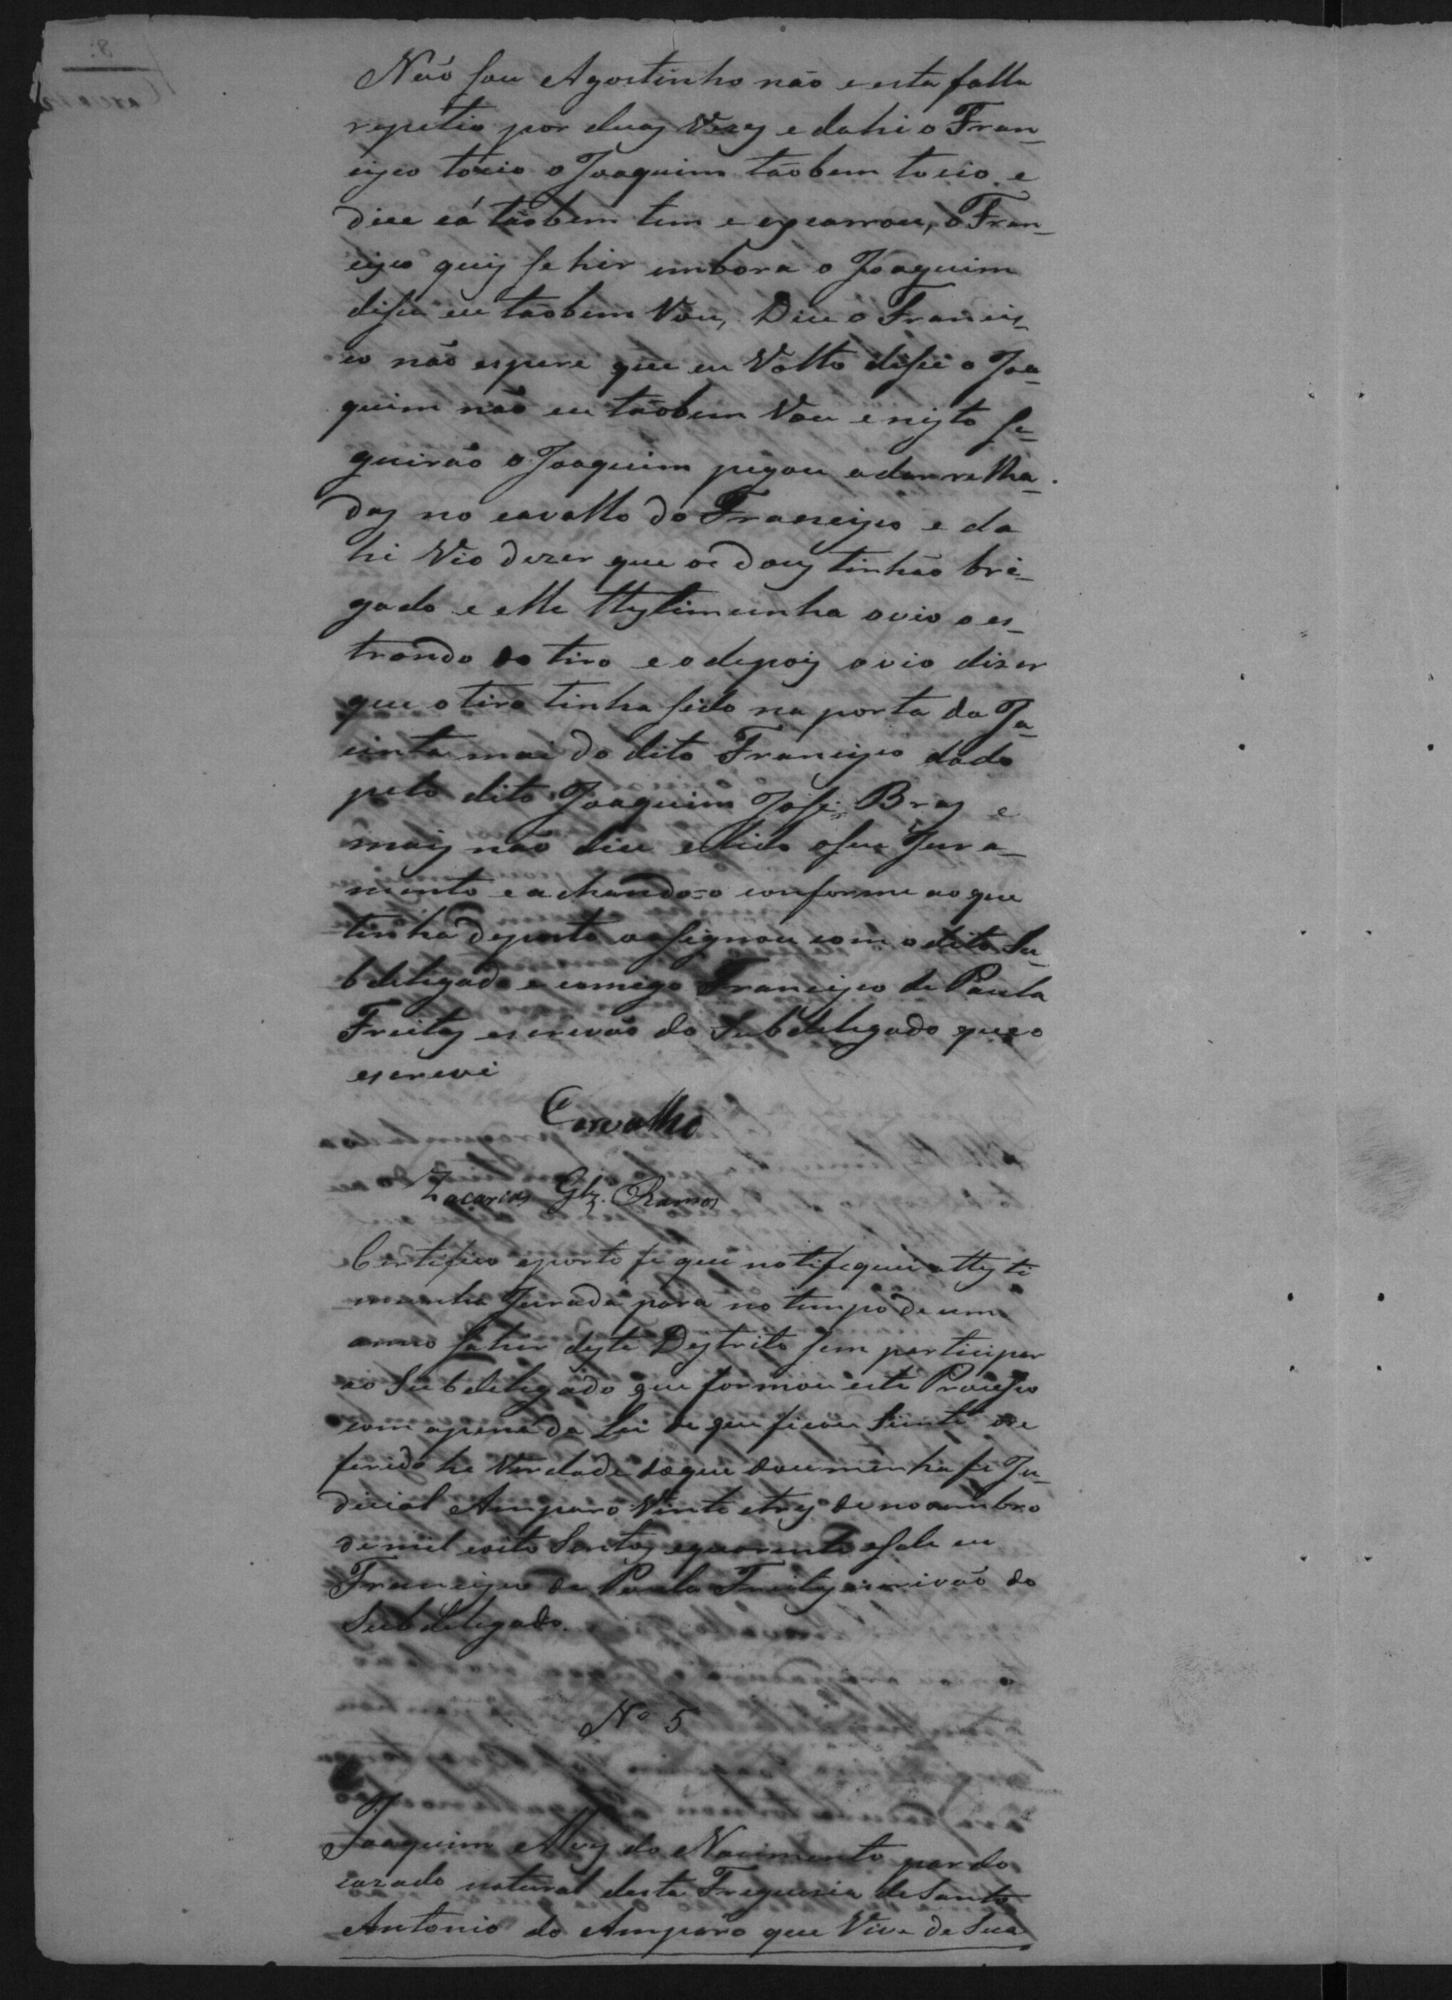 Não sou Agostinho não e esta falla
repetio por duas Vezes e dahi o Fran-
cisco tocio o Joaquim tãobem tocio e
dice cá tãobem tem e escarrou, o Fran-
cisco quis se hir embora o Joaquim
disse eu tãobem Vou, Dice o Francis-
co não espere que eu Volto disse o Joa-
quim não eu tãobem Vou e nisto se-
guirão o Joaquim pegou a dar relha-
das no cavallo do Francisco e da
hi Vio dizer que os Dous tinhão bri-
gado e elle testimunha ovio o es-
trondo do tiro e o depois ovio dizer
que o tiro tinha sido na porta da Ja-
cinta mai do dito Francisco dado
pelo dito Joaquim José Bras e
mais não dice e lido o seu Jura-
mento e achando-o conforme ao que
tinha deposto assignou com o dito Su-
bdelegado e comigo Francisco de Paula
Freitas escrivão do Subdelegado que o
escrevi
Carvalho
Zacarias Glz. Ramos
Certifico e porto fe que notifiquei a testi
munha Jurada para no tempo de um
anno sahir deste Destrito sem participar
ao Subdelegado que formou este Processo
com a pena da Lei de que ficou siente o re
ferido he Verdade do que dou minha fe Ju-
dicial Amparo Vinte e tres de novembro
de mil oito Sentos e quarenta e sete eu
Francisco de Paula Freitas escrivão do
Subdelegado.
Nº 5
Joaquim Alves do Nacimento pardo
cazado natural desta Freguezia de Santo
Antonio do Amparo que Vive de Sua